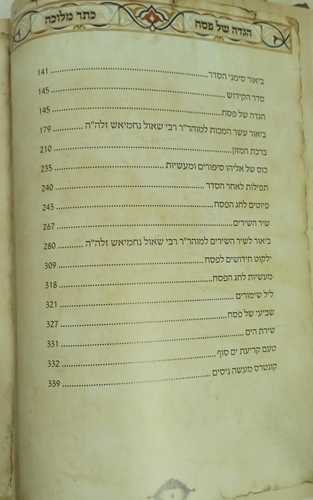 הגדה של פסח
כתר מלוכה
ביאור סימני הסדר 141
סדר הקידוש 145
הגדה של פסח 145
ביאור עשר המכות למוהר"ר רבי שאול נחמיאש זלה"ה 179
ברכת המזון 210
כוס של אליהו סיפורים ומעשיות 235
תפילות לאחר הסדר 240
פיוטים לחג הפסח 245
שיר השירים 267
ביאור לשיר השירים למוהר"ר רבי שאול נחמיאש זלה"ה 280
ילקוט חידושים לפסח 309
מעשיות לחג הפסח 318
ליל שימורים 321
שביעי של פסח 327
שירת הים 331
טעם קריעת ים סוף 332
קונטרס מעשה ניסים 339